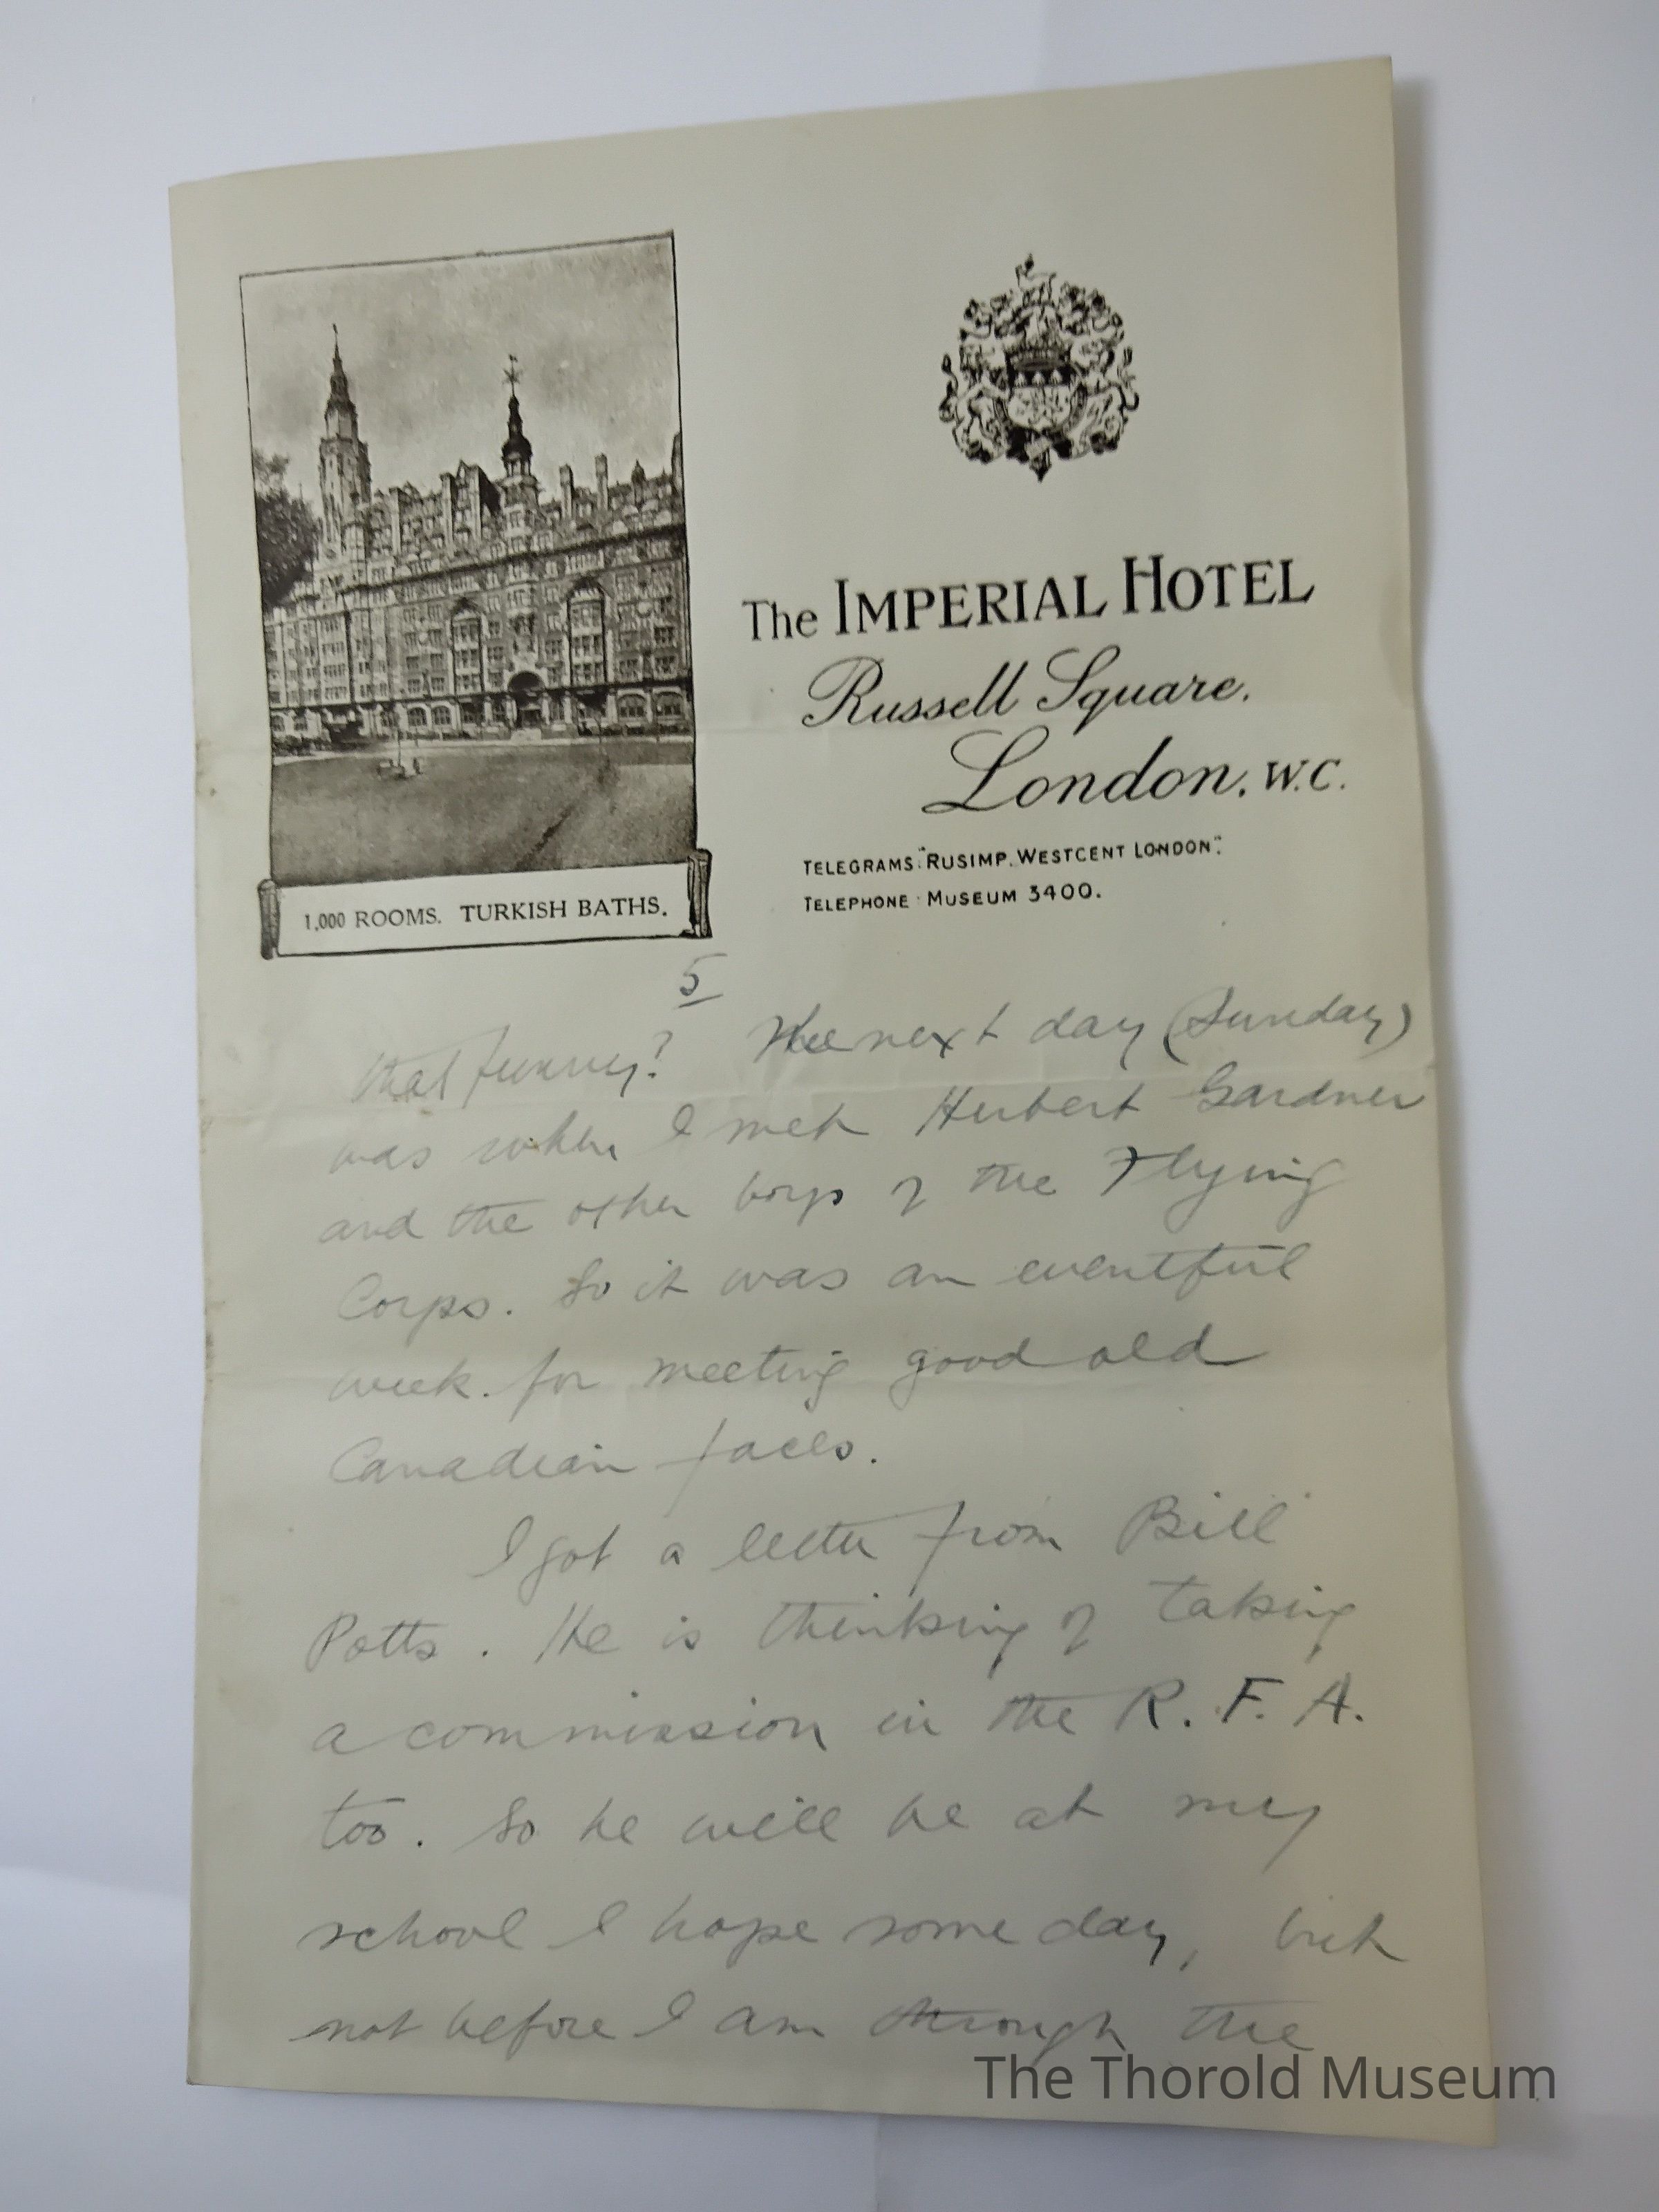 The IMPERIAL HOTEL
Russell Square,
London, W.C.
TELEGRAMS: "RUSIMP. WESTCENT LONDON".
TELEPHONE: MUSEUM 3400.
1,000 ROOMS. TURKISH BATHS.
5
that funny? The next day (Sunday)
was when I met Herbert Gardner
and the other boys of the Flying
Corps. So it was an eventful
week for meeting good old
Canadian faces.
I got a letter from Bill
Potts. He is thinking of taking
a commission in the R. F. A.
too. So he will be at my
school I hope some day, but
not before I am through the
The Thorold Museum